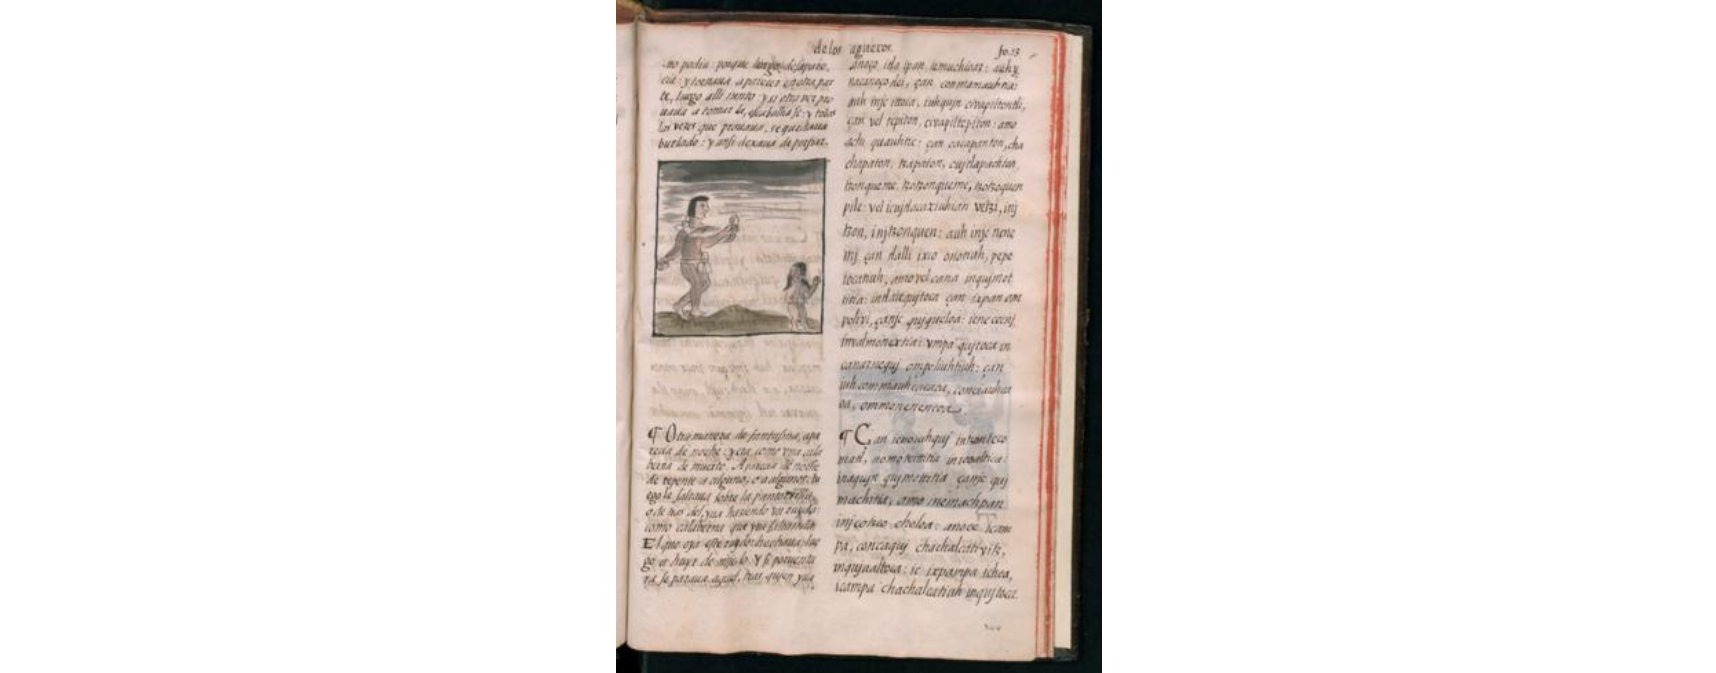 de los agueros.
fo. 13
no podia: porque luego desapare
cia: y tornaua a parecer en otra par
te, luego alli junto: y si otra vez pro
uaua a tomar la, escabullia se: y todas
las vezes que prouaua, se quedaua
burlado: y ansi dexaua de porfiar.
¶ Otra manera de fantasma, apa
recia de noche: y era como vna cala
berna de muerto. Aparecia de noche
de repente a alguno, o a algunos: lu
ego le saltaua sobre la pantorrilla,
o de tras del yua haziendo vn ruydo
como calaberna que yua saltando
El que oya este ruydo: hechaua lue
go a huyr de miedo. Y si por ventu
ra se paraua aquel, tras quien yua
anoço itla ipan muchioaz: auh
nacaçoc çan conmamauhtia:
auh injc ittoia, iuhqujn cioapiltontli,
çan vel tepiton, cioapiltepiton: amo
achi quauhtic: çan cacapanton, cha
chapaton, tzapaton, cujtlapachton,
tzonqueme, tzotzonqueme,
pile: vel icujtlacaxiuhian vetzi, inj
tzon, injtzonquen: auh injc nene
mj çan tlalli ixco onotiuh, pepe
tocatiuh, amo vel cana inqujmot
titia: intla qujtoca çan ixpan om
polivi, çanje qujqueloa: ie ne cecnj
invalmonextia: vmpa qujtoca in
canaznequj çan
iuh commauhcacaoa,
oa, ommonenencoa.
¶ Çan ienoiuhquj intzonteco
matl, no moteittitia in iooaltica:
inaqujn qujmottitia çanje quj
machitia, amo inemachpan
injcotzco choloa: anoce icam
pa, concaquj chachalcativitz,
inqujoaltoca: ic ixpampa iehoa,
icampa chachalcatiuh inqujtoca